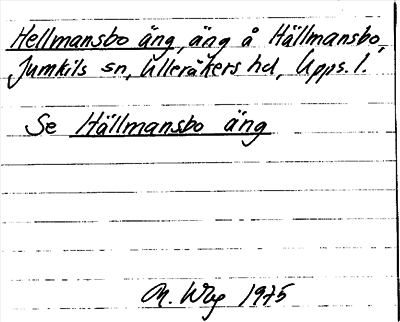 Hellmansbo äng, äng å Hällmansbo,
Jumkils sn, Ulleråkers hd, Upps. l.
Se Hällmansbo äng
M. Wbg 1975